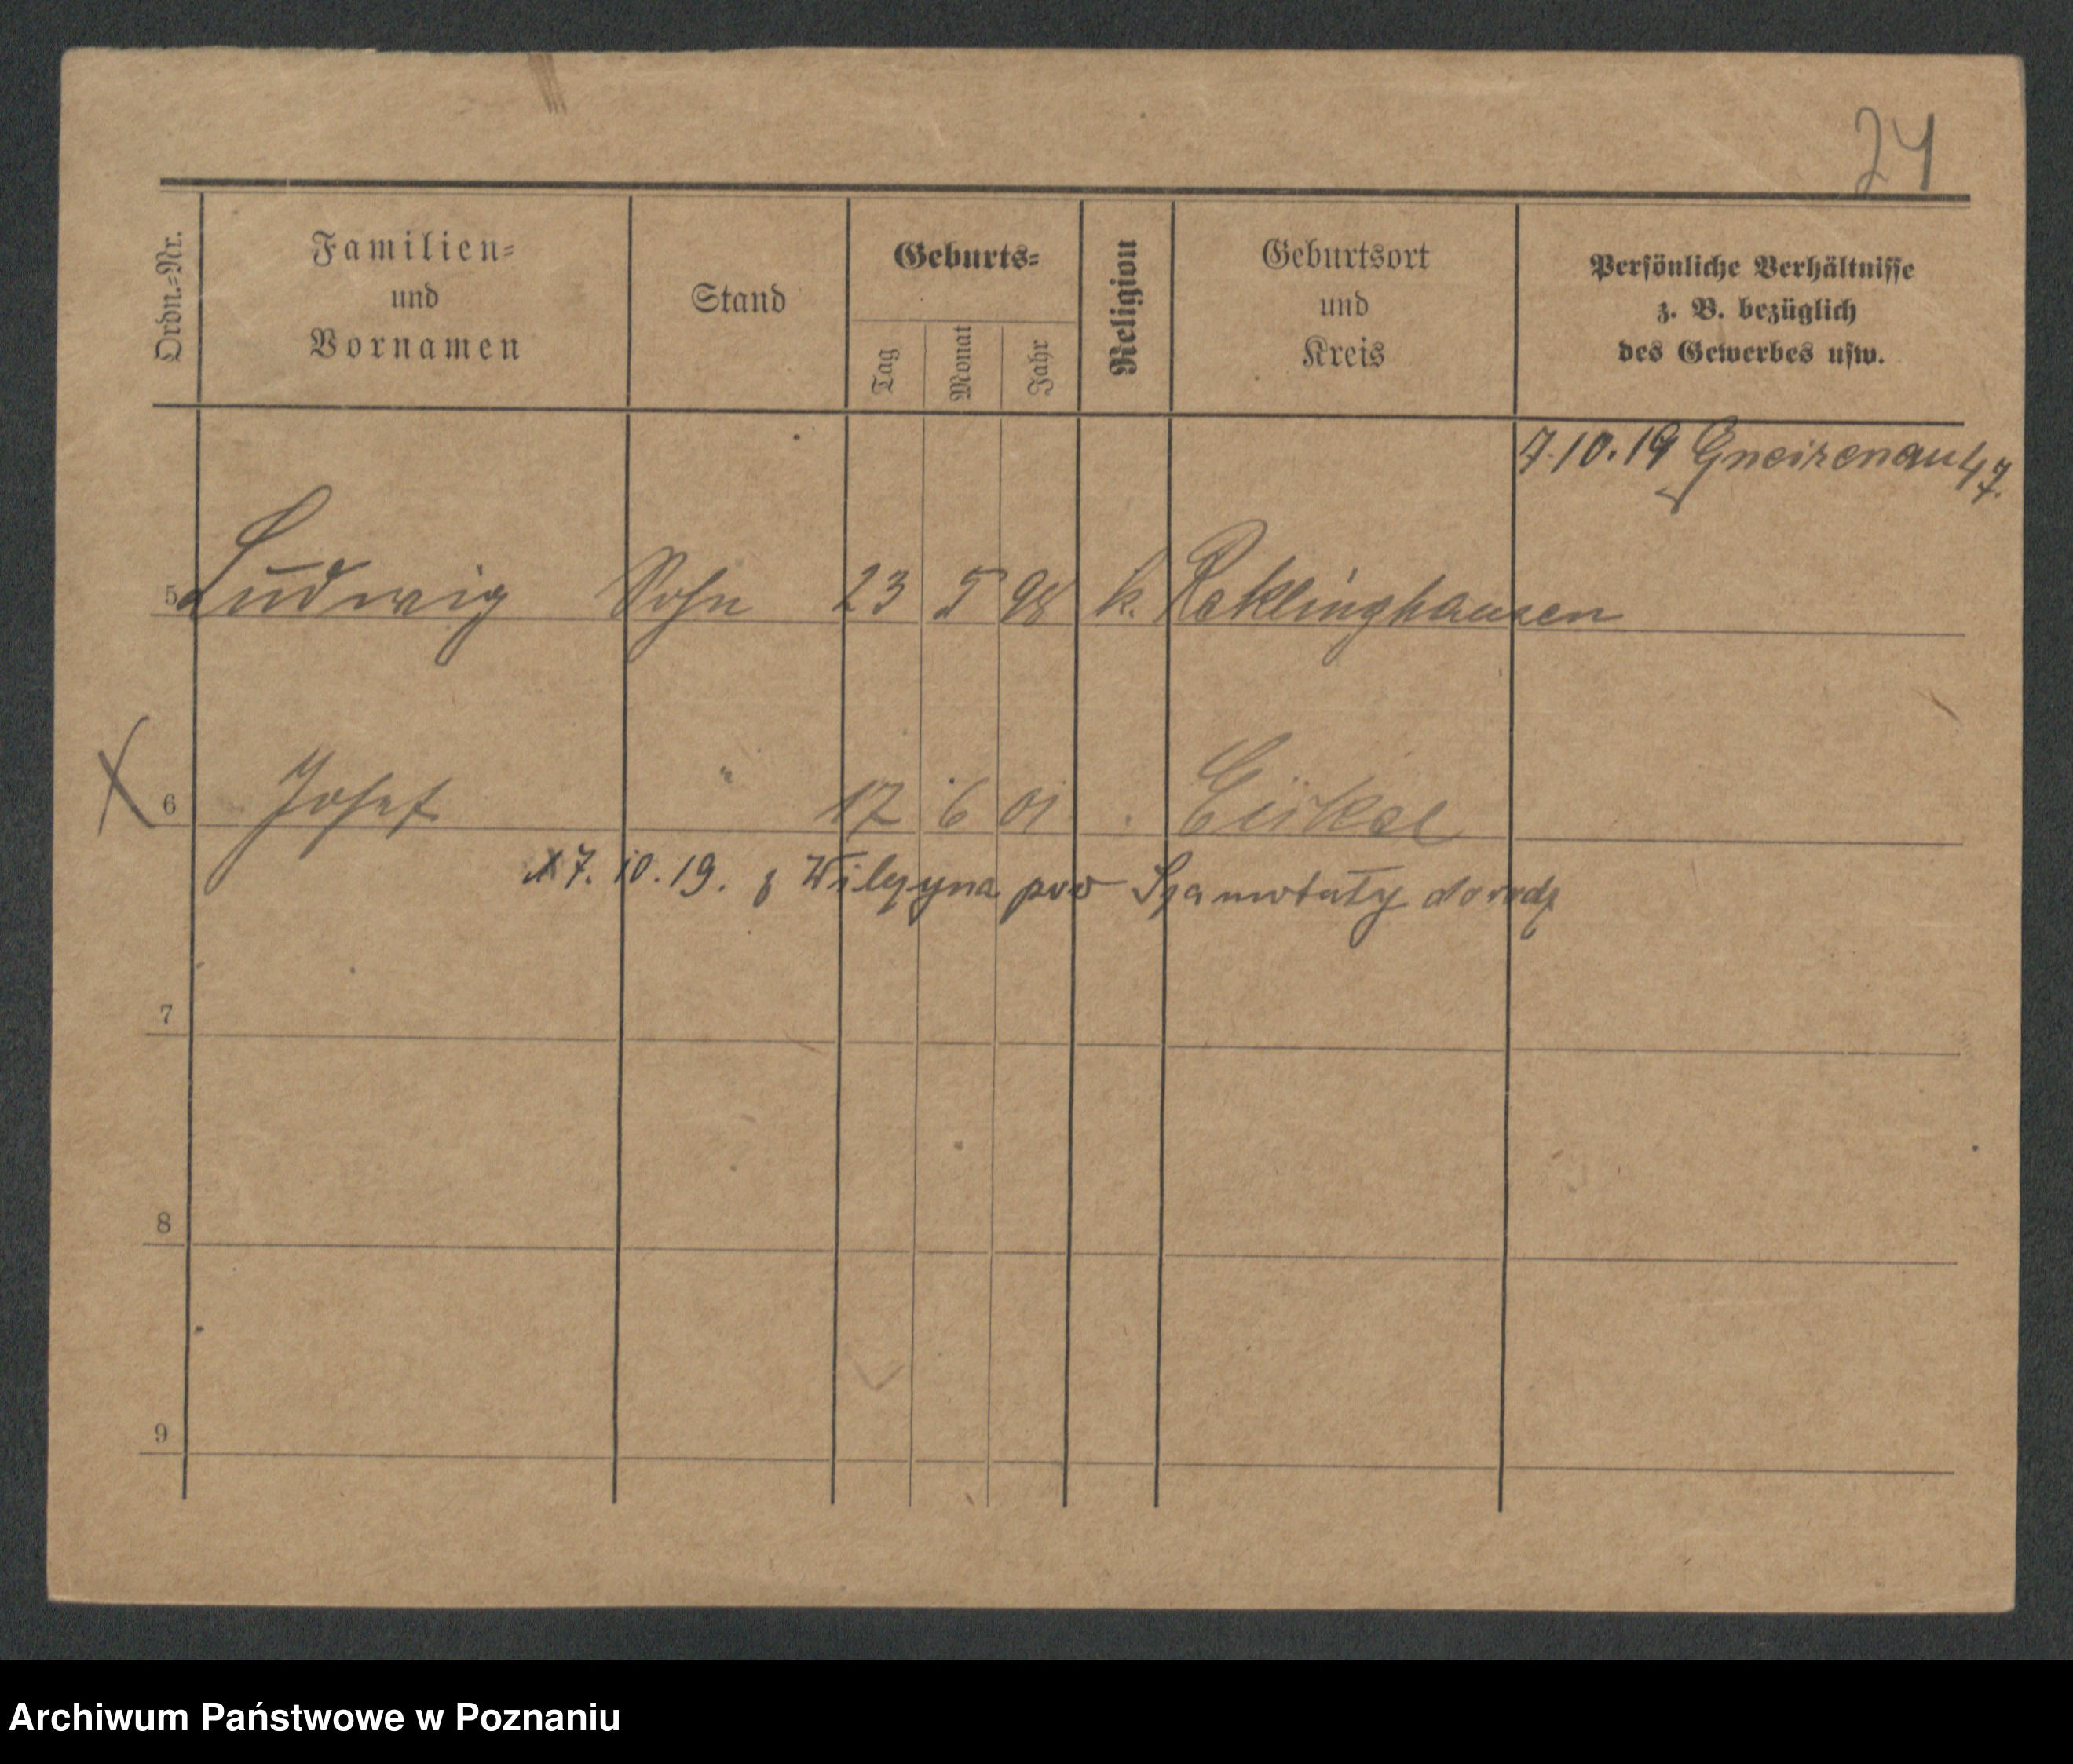 24
Ordn.-Nr. Familien- und Vornamen Stand Geburts- Tag Monat Jahr Religion Geburtsort und Kreis Persönliche Verhältnisse z. B. bezüglich des Gewerbes usw.
7.10.19 Gneisenau 47.
5 Ludwig Sohn 23 5 98 k. Reklinghausen
X 6 Josef " 17 6 01 Eickel
7.10.19. z Wilczyna pow Szamotuły
7
8
9
Archiwum Państwowe w Poznaniu